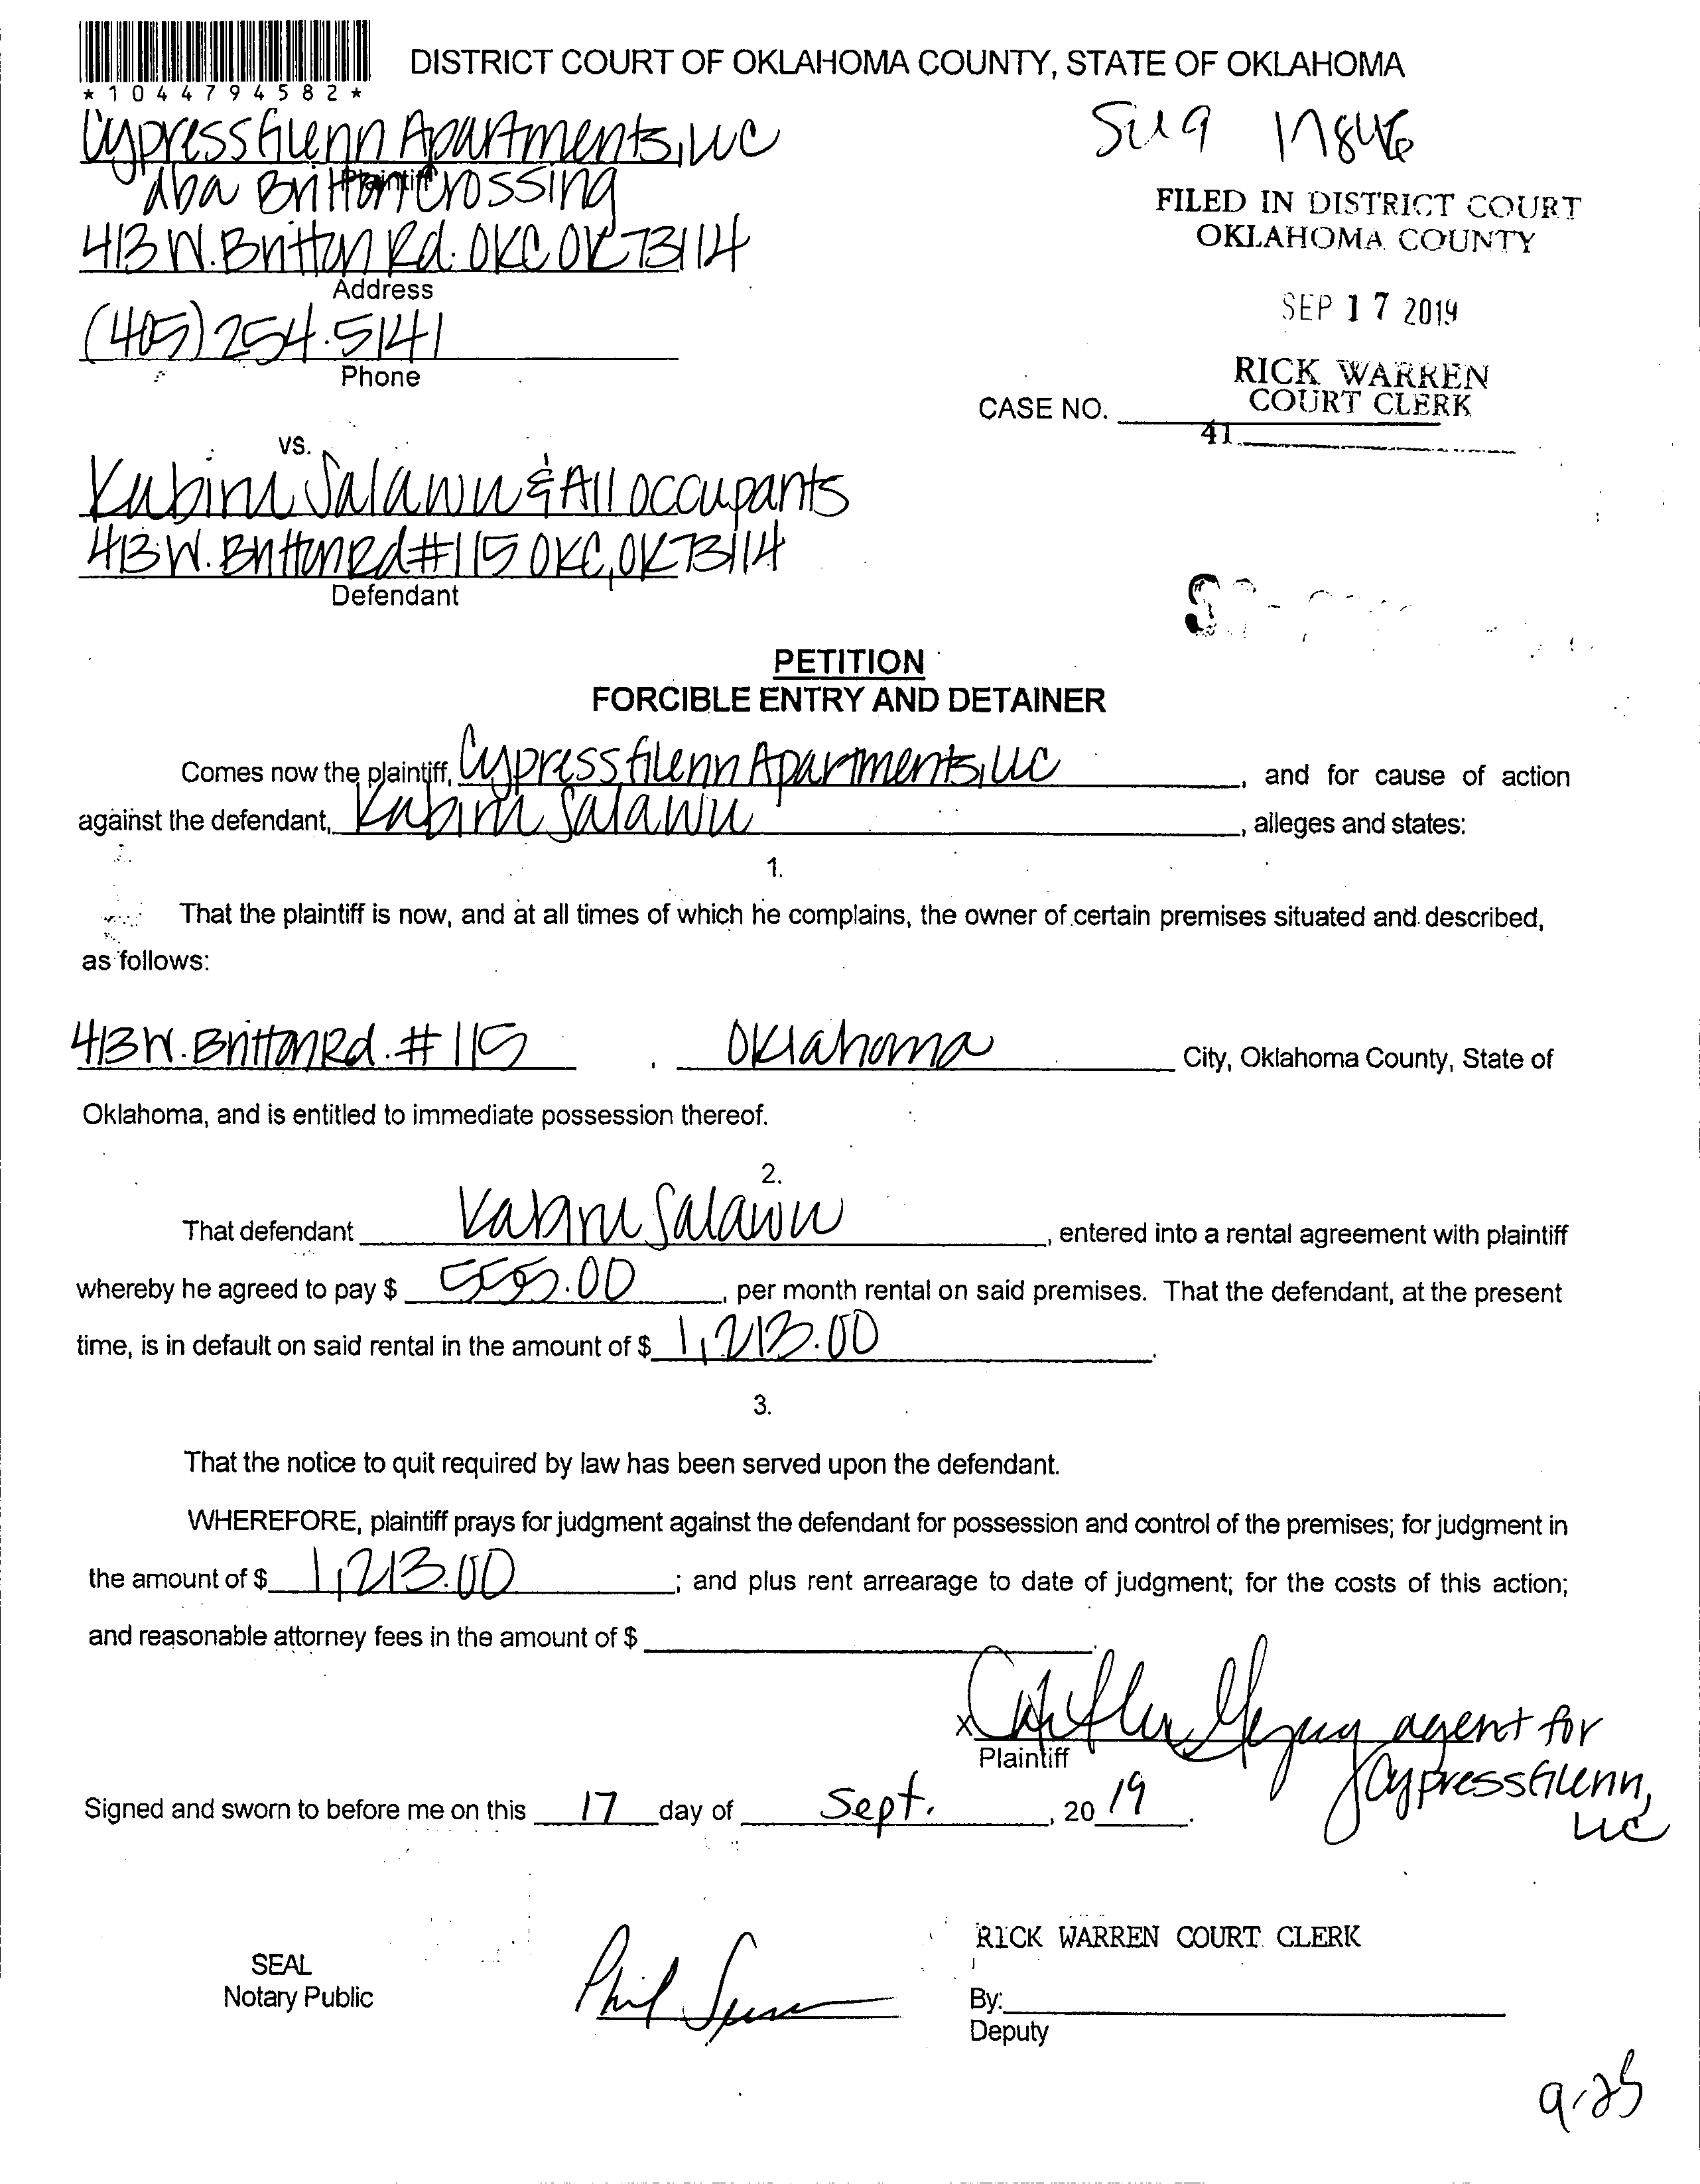 *1044794582*
DISTRICT COURT OF OKLAHOMA COUNTY, STATE OF OKLAHOMA
Cypress Glenn Apartments, LLC
Plaintiff
dba Britton Crossing
413 W. Britton Rd. OKC OK 73114
Address
(405) 254.5141
Phone
FILED IN DISTRICT COURT
OKLAHOMA COUNTY
SEP 17 2019
RICK WARREN
COURT CLERK
CASE NO.
41
vs.
Kabiru Salawu & All occupants
413 W. Britton Rd #115 OKC, OK 73114
Defendant
PETITION
FORCIBLE ENTRY AND DETAINER
Comes now the plaintiff, Cypress Glenn Apartments, LLC, and for cause of action
against the defendant, Kabiru Salawu, alleges and states:
1.
That the plaintiff is now, and at all times of which he complains, the owner of certain premises situated and described,
as follows:
413 W. Britton Rd. #115, Oklahoma City, Oklahoma County, State of
Oklahoma, and is entitled to immediate possession thereof.
2.
That defendant Kabiru Salawu, entered into a rental agreement with plaintiff
whereby he agreed to pay $ 555.00, per month rental on said premises. That the defendant, at the present
time, is in default on said rental in the amount of $ 1,213.00.
3.
That the notice to quit required by law has been served upon the defendant.
WHEREFORE, plaintiff prays for judgment against the defendant for possession and control of the premises; for judgment in
the amount of $ 1,213.00; and plus rent arrearage to date of judgment; for the costs of this action;
and reasonable attorney fees in the amount of $
x agent for
Plaintiff
Cypress Glenn,
LLC
Signed and sworn to before me on this 17 day of Sept., 2019.
RICK WARREN COURT CLERK
SEAL
Notary Public
Phil
By:
Deputy
9-25